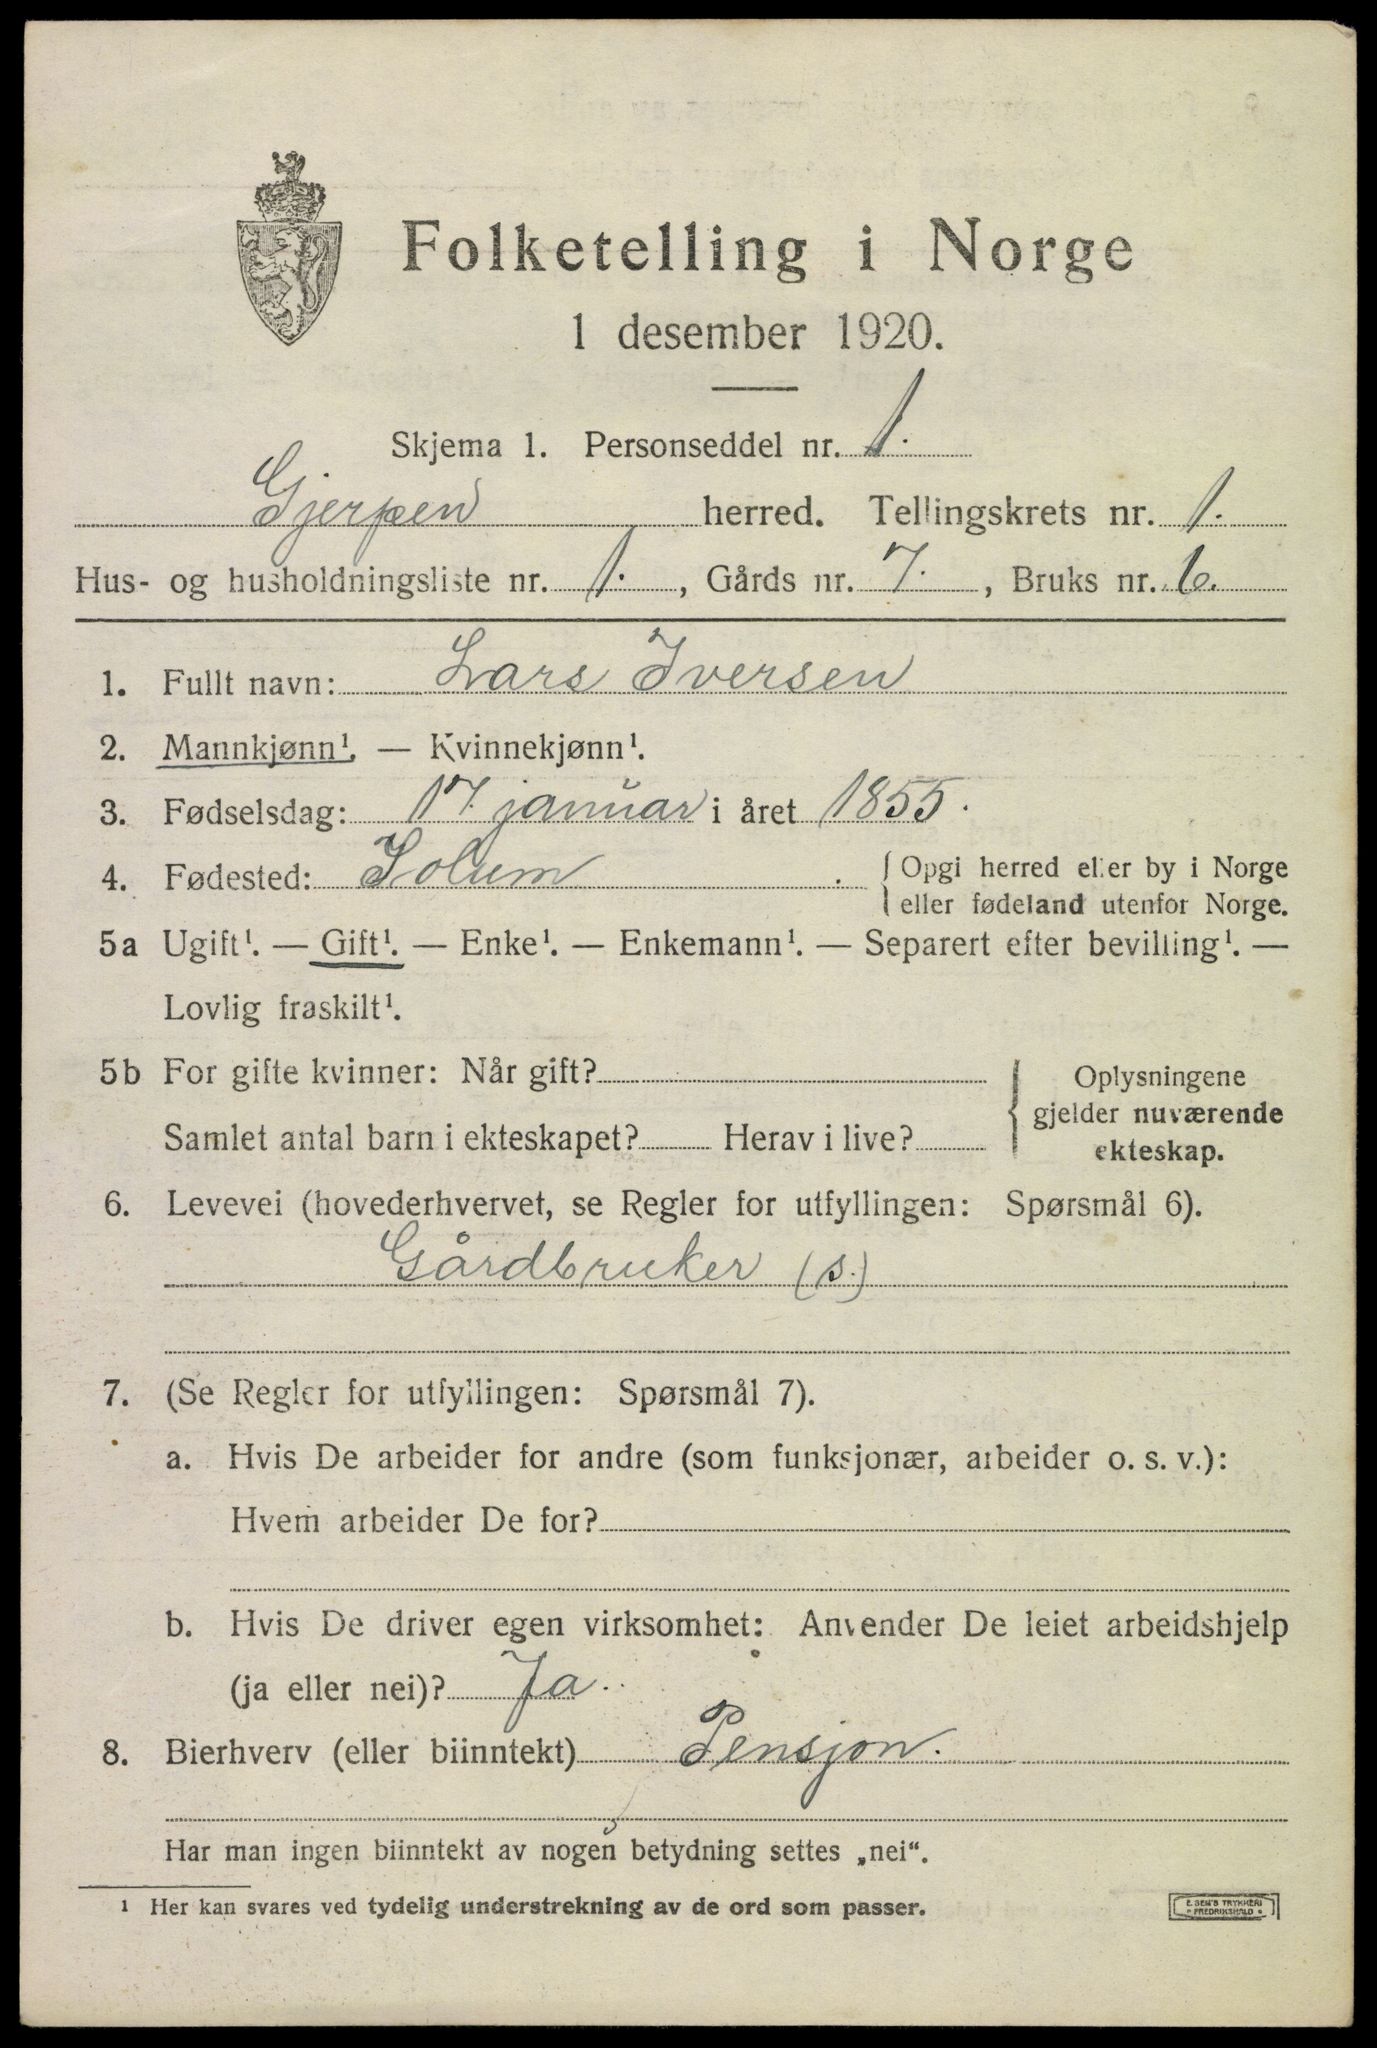 Folketelling i Norge
1 desember 1920.
Skjema 1. Personseddel nr. 1.
Gjerpen herred. Tellingskrets nr. 1.
Hus- og husholdningsliste nr. 1., Gårds nr. 7., Bruks nr. 6.
1. Fullt navn: Lars Iversen
2. Mannkjønn¹. — Kvinnekjønn¹.
3. Fødselsdag: 17. januar i året 1855.
4. Fødested: Solum. { Opgi herred eller by i Norge
eller fødeland utenfor Norge.
5a Ugift¹. — Gift¹. — Enke¹. — Enkemann¹. — Separert efter bevilling¹. —
Lovlig fraskilt¹.
5b For gifte kvinner: Når gift? { Oplysningene
gjelder nuværende
Samlet antal barn i ekteskapet? Herav i live?
ekteskap.
6. Levevei (hovederhvervet, se Regler for utfyllingen: Spørsmål 6).
Gårdbruker (s.)
7. (Se Regler for utfyllingen: Spørsmål 7).
a. Hvis De arbeider for andre (som funksjonær, arbeider o. s. v.):
Hvem arbeider De for?
b. Hvis De driver egen virksomhet: Anvender De leiet arbeidshjelp
(ja eller nei)? Ja.
8. Bierhverv (eller biinntekt) Pensjon.
Har man ingen biinntekt av nogen betydning settes „nei“.
1 Her kan svares ved tydelig understrekning av de ord som passer.
E. SEM'S TRYKKERI
FREDRIKSHALD